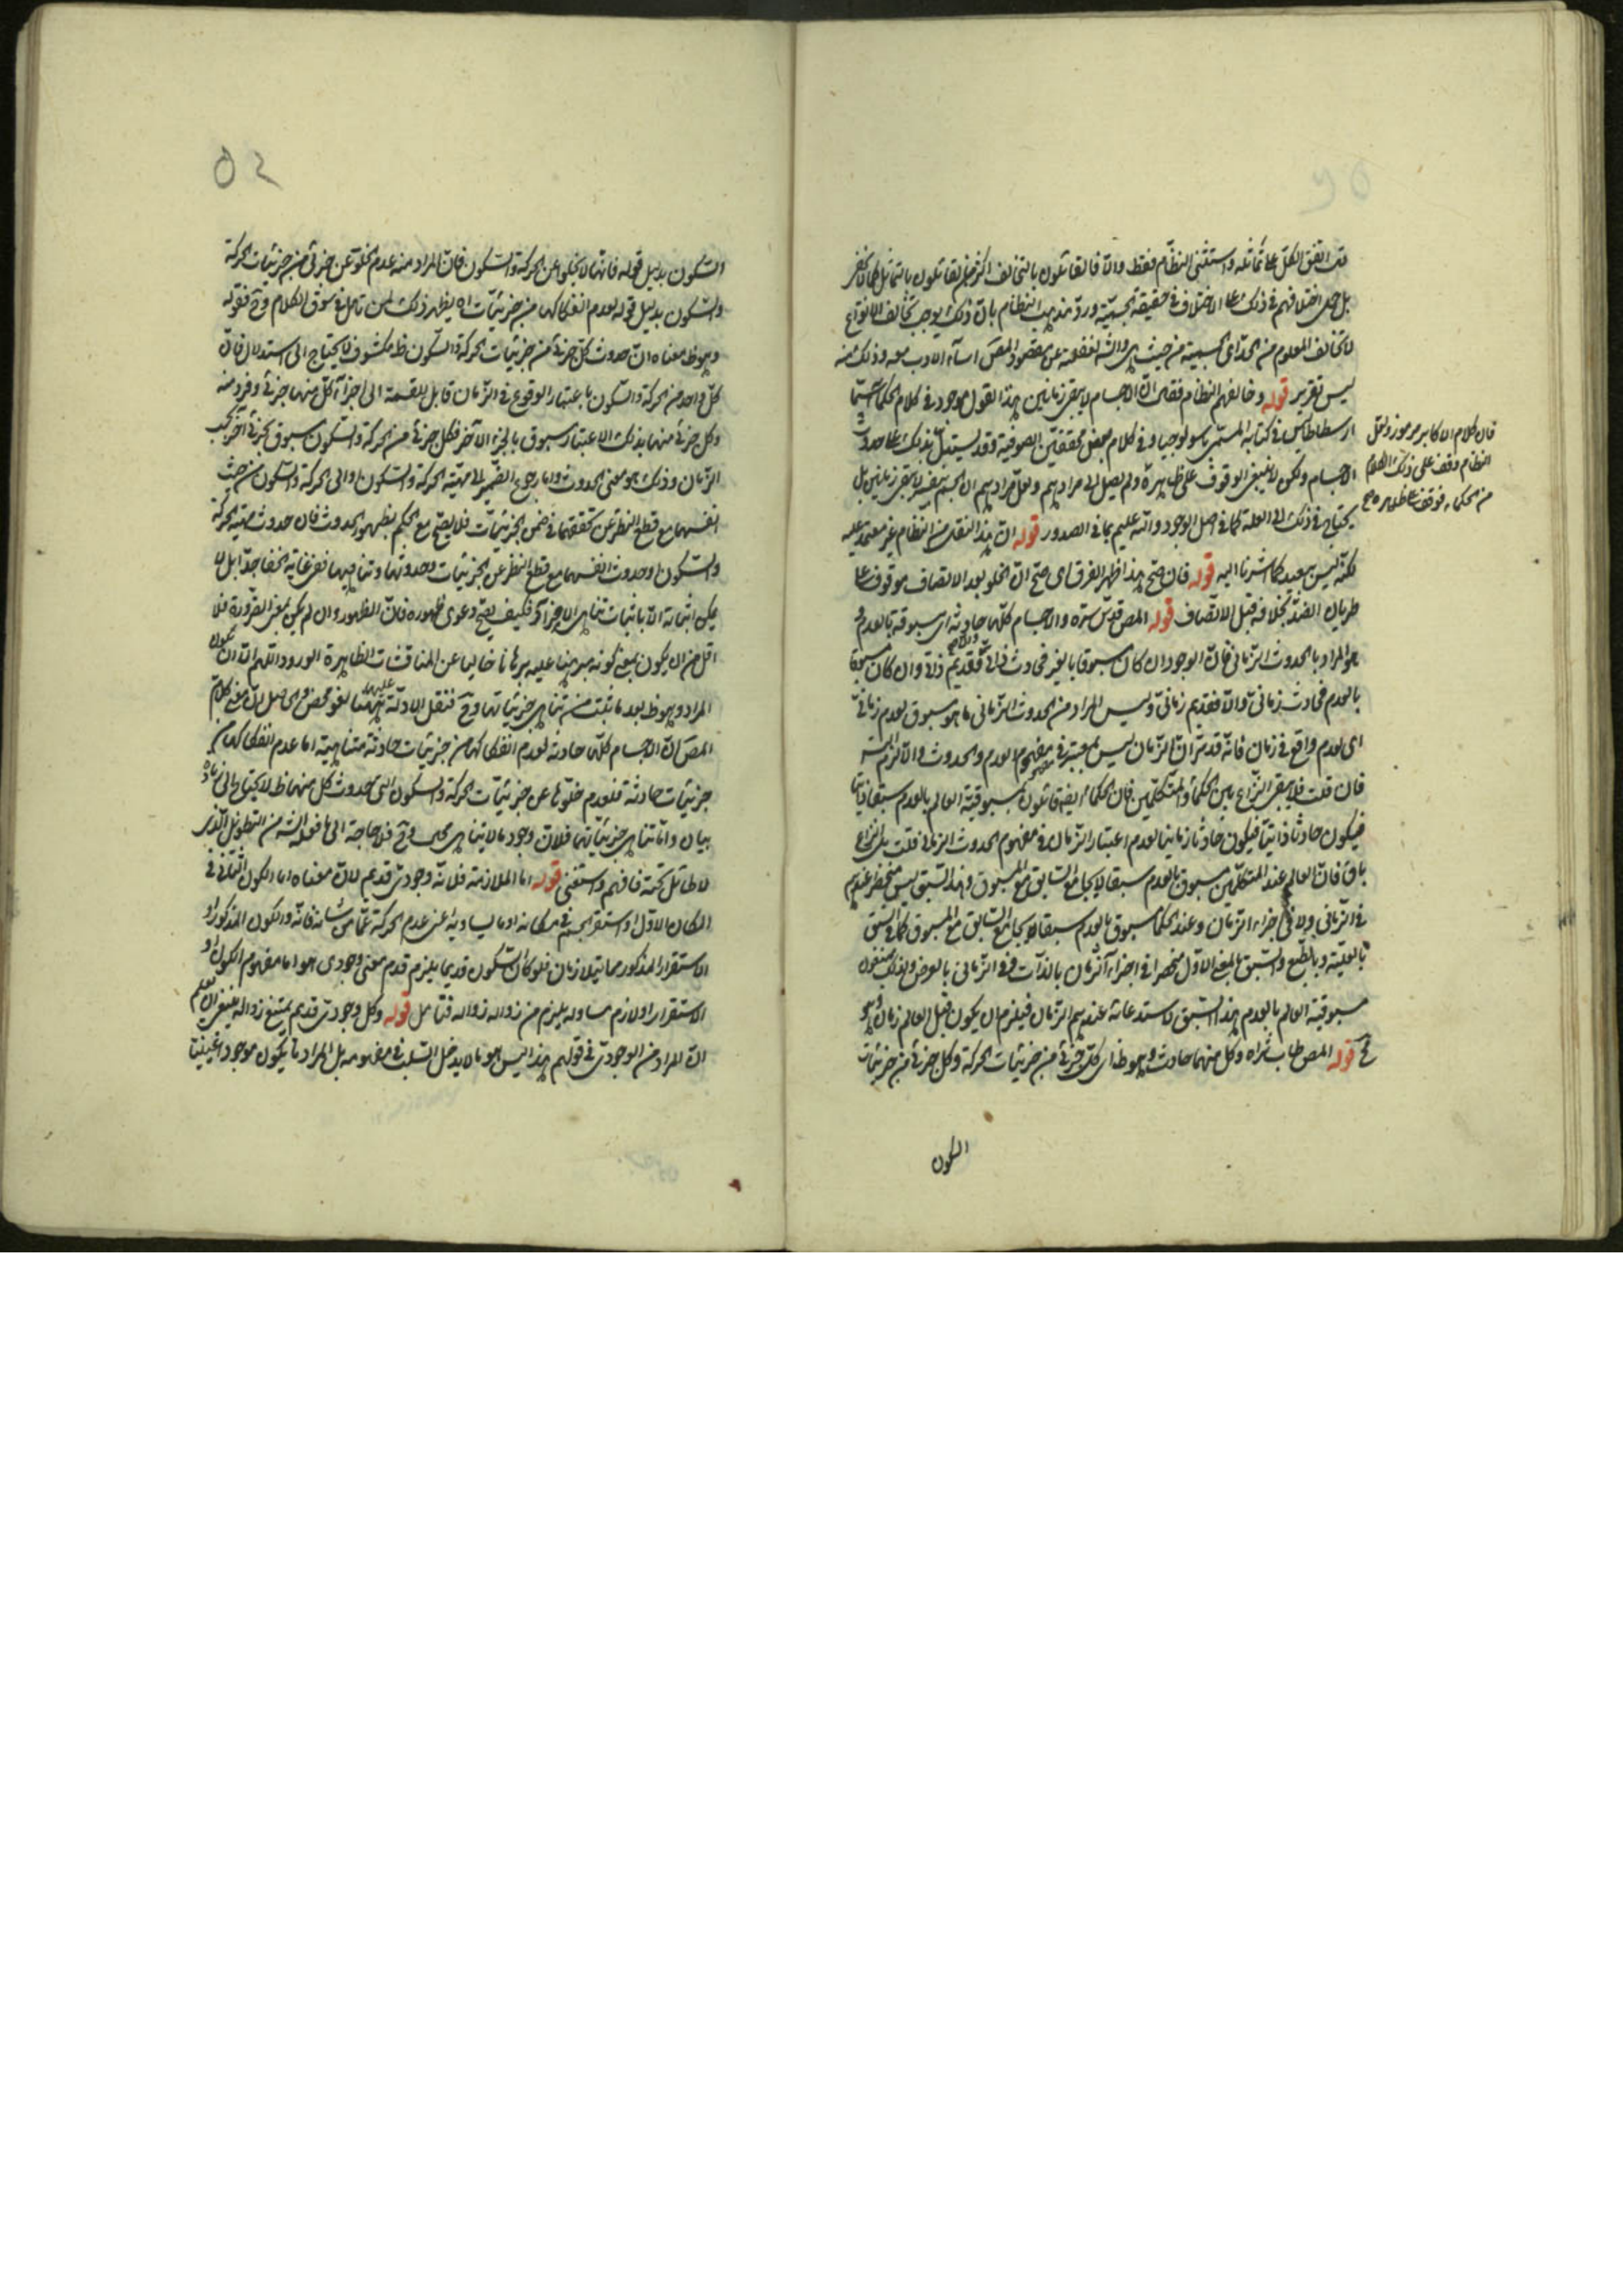 اتفق الكل على تماثله واستثنى النظام فقط والا فالقائلون بالتخالف اكثر من القائلون بالتماثل
بل حمل اختلافهم في ذلك على الاختلاف في حقيقة الجسمية ورد مذهب النظام بان ذلك يوجب تخالف الانواع
لا تخالف المعلوم من الجسمية من حيث هي والشه لغفلته عن مقصود المصَ اساء الادب معه وذلك منه
ليس تقرير قوله وخالفهم النظام فقال ان الاجسام لا يبقى زمانين هذا القول موجود في كلام الحكماء سيما
ارسطاطاليس في كتابه المسمى باثولوجيا وفي كلام بعض محققين الصوفية وقد يستدل بذلك على حدوث
الاجسام ولكن لا ينبغي الوقوف على ظاهره ولم يصل الى مرادهم ولعل مرادهم ان الجسم بنفسه لا يبقى زمانين بل
يحتاج في ذلك الى العلة كما في اصل الوجود والله عليم بما في الصدور قوله ان هذا النقل من النظام غير معتمد عليه
لكنه ليس ببعيد كما اشرنا اليه قوله فان صح هذا ظهر الفرق اى صح ان الخلو بعد الاتصاف موقوف على
طريان الضد بخلافه قبل الاتصاف قوله المص قدس سره والاجسام كلها حادثة اى مسبوقة بالعدم و
هو المراد بالحدوث الزمانى فان الوجود ان كان مسبوقا بالغير فحادث ذاتى والا فقديم ذاتى وان كان مسبوقا
بالعدم فحادث زمانى والا فقديم زمانى وليس المراد من الحدوث الزمانى ما هو مسبوق بعدم زمانى
اى بعدم واقع في زمان فانه قد مر ان الزمان ليس بمعتبر في مفهوم العدم والحدوث والا لزم التس
فان قلت فلا يبقى النزاع بين الحكماء والمتكلمين فان الحكماء ايضا قائلون بمسبوقية العالم بالعدم سبقا ذاتيا
فيكون حادثا ذاتيا فيكون حادثا زمانيا لعدم اعتبار الزمان في مفهوم الحدوث الزمانى قلت بل النزاع
باق فان العالم عند المتكلمين مسبوق بالعدم سبقا لا يجامع السابق مع المسبوق وهذا السبق ليس منحصر عندهم
في الزمانى ولا في اجزاء الزمان وعند الحكماء مسبوق بالعدم سبقا يجامع السابق مع المسبوق كما في السبق
بالعلية وبالطبع والسبق بالمعنى الاول منحصر في اجزاء الزمان بالذات وفي الزمانى بالعرض ولذلك يمنعون
مسبوقية العالم بالعدم بهذا السبق لاستدعائه عندهم الزمان فيلزم ان يكون قبل العالم زمان وهو
مح قوله المص طاب ثراه وكل منهما حادث وهو ظ اى كل جزئى من جزئيات الحركة وكل جزئى من جزئيات
السكون
فان كلام الاكابر مرموز ولعل
النظام وقف على ذلك الكلام
من الحكماء فوقف على ظاهره
52
السكون بدليل قوله فانها لا يخلو عن الحركة والسكون فان المراد منه عدم الخلو عن جزئى من جزئيات الحركة
والسكون بدليل قوله لعدم انفكاكها من جزئيات اه يظهر ذلك لمن تامل في سوق الكلام وح فقوله
وهو ظ معناه ان حدوث كل جزئى من جزئيات الحركة والسكون ظ مكشوف لا يحتاج الى استدلال فان
كل واحد من الحركة والسكون باعتبار الوقوع في الزمان قابل للقسمة الى اجزاء كل منها جزئى وفرد منه
وكل جزئى منها بذلك الاعتبار مسبوق بالجزء الآخر فكل جزئى من الحركة والسكون مسبوق بجزئى آخر بحسب
الزمان وذلك هو معنى الحدوث واما رجوع الضمير الى مهية الحركة والسكون والى الحركة والسكون من حيث
انفسهما مع قطع النظر عن تحققهما في ضمن الجزئيات فلا يصح مع الحكم بظهور الحدوث فان حدوث مهية الحركة
والسكون وحدوث انفسهما مع قطع النظر عن الجزئيات وحدوثها وتناهيها ففى غاية الخفاء جدا بل لا
يمكن اثباته الا باثبات تناهى الاجزاء فكيف يصح دعوى ظهوره فان الظهور وان لم يكن بمعنى الضرورة فلا
اقل من ان يكون بمعنى كونه مبرهنا عليه برهانا خاليا عن المناقشات الظاهرة الورود اللهم الا ان يكون
المراد وهو ظ بعد ما ثبت من تناهى جزئياتها وح فنقل الادلة عليهما ههنا لغو محض والحاصل ان معنى كلام
المصَ ان الاجسام كلها حادثة لعدم انفكاكها من جزئيات حادثة متناهية اما عدم انفكاكها من
جزئيات حادثة فلعدم خلوها عن جزئيات الحركة والسكون التى حدوث كل منهما ظ لا يحتاج الى زيادة
بيان واما تناهى جزئياتهما فلان وجود ما لا يتناهى مح وح فلا حاجة الى ما فعله الشه من التطويل الذى
لا طائل تحته فافهم واستغنى قوله اما الملازمة فلانه وجودى قديم لان معناه اما الكون الثانى في
المكان الاول او استقرار الجسم في مكانه او ما يساويه اعنى عدم الحركة عما من شانه فانه والكون المذكور او
الاستقرار المذكور مما يتلازمان فلو كان السكون قديما يلزم قدم معنى وجودى هو اما مفهوم الكون او
الاستقرار او لازم مساو له يلزم من زواله زواله فتامل قوله وكل وجودى قديم يمتنع زواله ينبغى ان يعلم
ان المراد من الوجودى في قولهم هذا ليس هو ما لا يدخل السلب في مفهومه بل المراد ما يكون موجودا عينيا